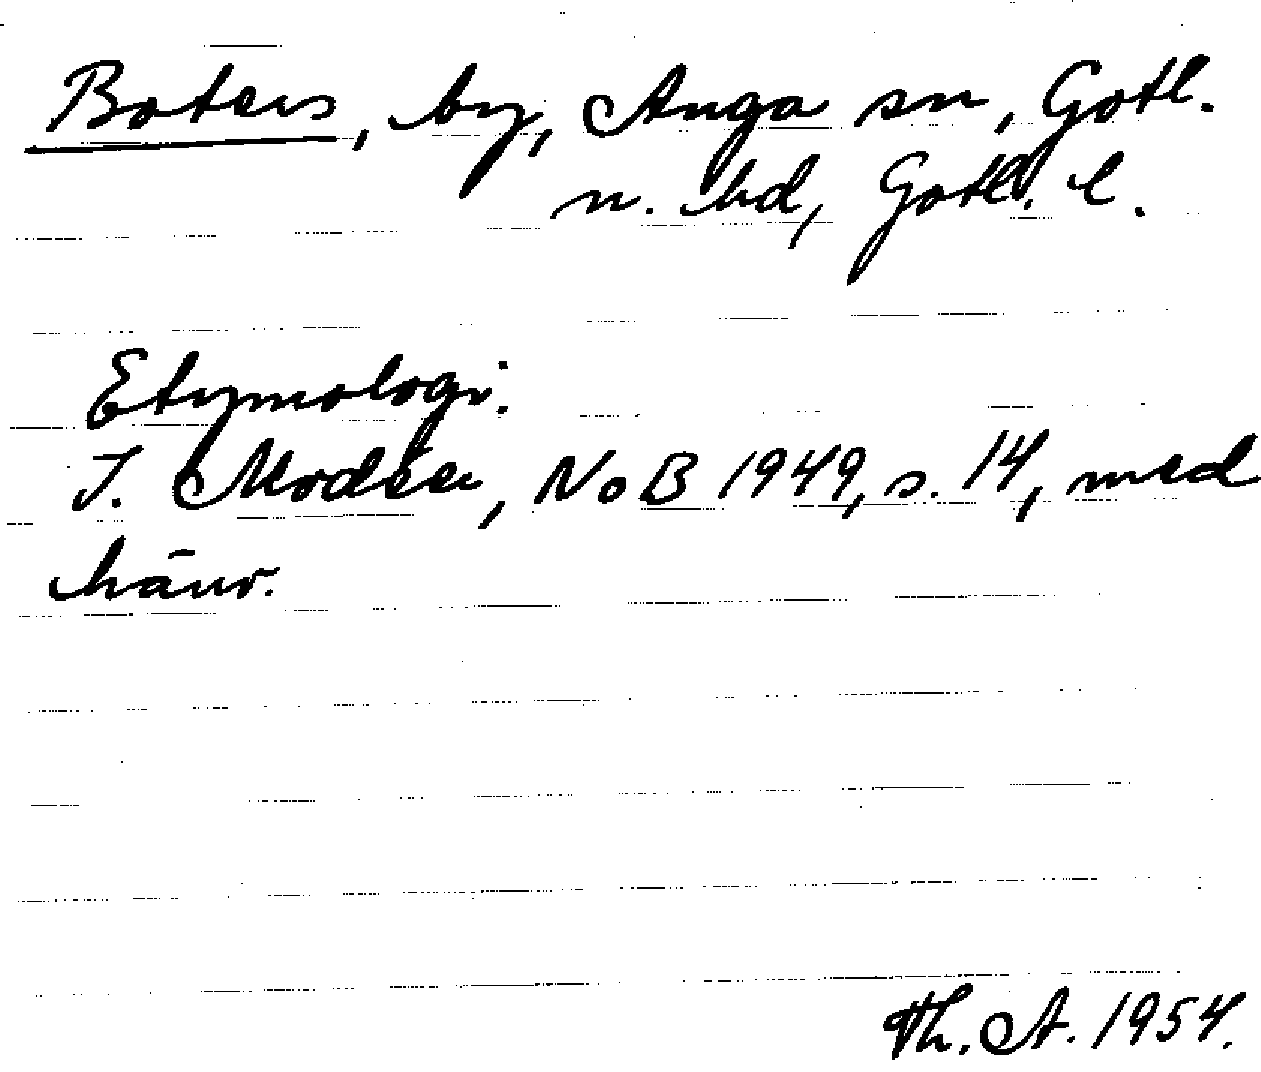 Boters, by, Anga sn, Gotl.
n. hd, Gotl. l.
Etymologi:
I. Modéer, NoB 1949, s. 14, med
hänv.
Th. A. 1954.